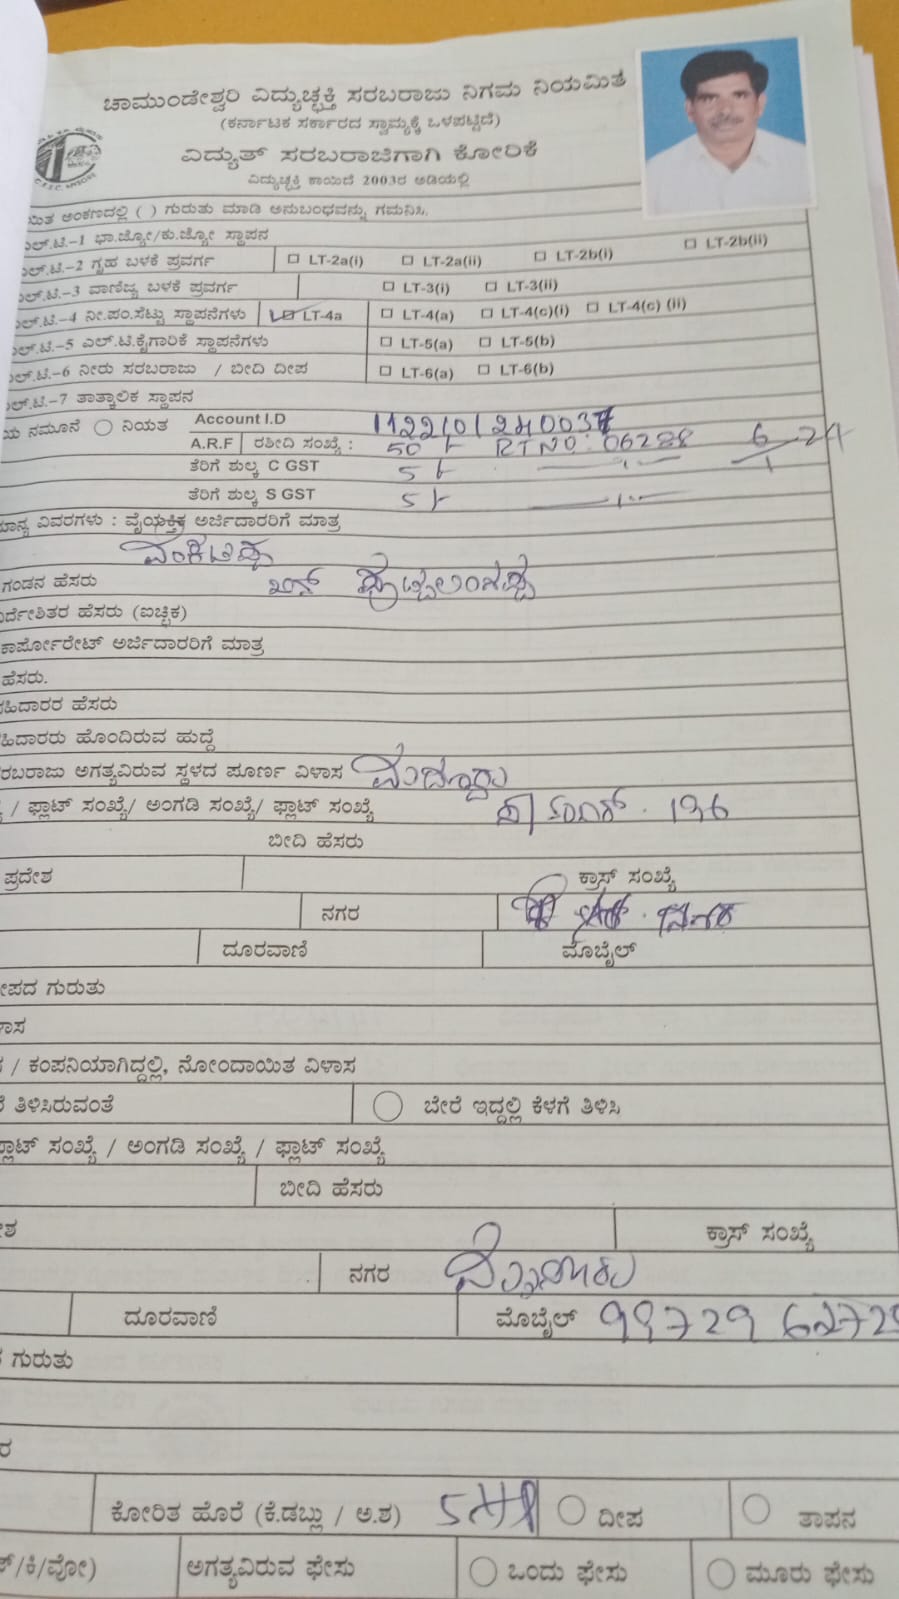 ಚಾಮುಂಡೇಶ್ವರಿ ವಿದ್ಯುಚ್ಛಕ್ತಿ ಸರಬರಾಜು ನಿಗಮ ನಿಯಮಿತ
(ಕರ್ನಾಟಕ ಸರ್ಕಾರದ ಸ್ವಾಮ್ಯಕ್ಕೆ ಒಳಪಟ್ಟಿದೆ)
ವಿದ್ಯುತ್ ಸರಬರಾಜಿಗಾಗಿ ಕೋರಿಕೆ
ವಿದ್ಯುಚ್ಛಕ್ತಿ ಕಾಯಿದೆ 2003ರ ಅಡಿಯಲ್ಲಿ
ಅಂಕಣದಲ್ಲಿ ( ) ಗುರುತು ಮಾಡಿ ಅನುಬಂಧವನ್ನು ಗಮನಿಸಿ.
ಲ್.ಟಿ.-1 ಭಾ.ಜ್ಯೋ/ಕು.ಜ್ಯೋ ಸ್ಥಾಪನ
ಲ್.ಟಿ.-2 ಗೃಹ ಬಳಕೆ ಪ್ರವರ್ಗ LT-2a(i) LT-2a(ii) LT-2b(i) LT-2b(ii)
ಲ್.ಟಿ.-3 ವಾಣಿಜ್ಯ ಬಳಕೆ ಪ್ರವರ್ಗ LT-3(i) LT-3(ii)
ಲ್.ಟಿ.-4 ನೀ.ಪಂ.ಸೆಟ್ಟು ಸ್ಥಾಪನೆಗಳು LT-4a LT-4(a) LT-4(c)(i) LT-4(c) (ii)
ಲ್.ಟಿ.-5 ಎಲ್.ಟಿ.ಕೈಗಾರಿಕೆ ಸ್ಥಾಪನೆಗಳು LT-5(a) LT-5(b)
ಲ್.ಟಿ.-6 ನೀರು ಸರಬರಾಜು / ಬೀದಿ ದೀಪ LT-6(a) LT-6(b)
ಲ್.ಟಿ.-7 ತಾತ್ಕಾಲಿಕ ಸ್ಥಾಪನ
ನಮೂನೆ ನಿಯತ Account I.D
A.R.F ರಶೀದಿ ಸಂಖ್ಯೆ : 50 RTNO: 06288
ತೆರಿಗೆ ಶುಲ್ಕ C GST 5
ತೆರಿಗೆ ಶುಲ್ಕ S GST 5
ವಿವರಗಳು : ವೈಯಕ್ತಿಕ ಅರ್ಜಿದಾರರಿಗೆ ಮಾತ್ರ
ವೆಂಕಟಪ್ಪ
ಗಂಡನ ಹೆಸರು ಬಿನ್ ಪುಟ್ಟಲಿಂಗಪ್ಪ
ರ್ದೇಶಿತರ ಹೆಸರು (ಐಚ್ಛಿಕ)
ಕಾರ್ಪೋರೇಟ್ ಅರ್ಜಿದಾರರಿಗೆ ಮಾತ್ರ
ಹೆಸರು.
ಹಿದಾರರ ಹೆಸರು
ಹಿದಾರರು ಹೊಂದಿರುವ ಹುದ್ದೆ
ರಬರಾಜು ಅಗತ್ಯವಿರುವ ಸ್ಥಳದ ಪೂರ್ಣ ವಿಳಾಸ
/ ಫ್ಲಾಟ್ ಸಂಖ್ಯೆ/ ಅಂಗಡಿ ಸಂಖ್ಯೆ/ ಫ್ಲಾಟ್ ಸಂಖ್ಯೆ 136
ಬೀದಿ ಹೆಸರು
ಪ್ರದೇಶ ಕ್ರಾಸ್ ಸಂಖ್ಯೆ
ನಗರ
ದೂರವಾಣಿ ಮೊಬೈಲ್
ೀಪದ ಗುರುತು
ಾಸ
/ ಕಂಪನಿಯಾಗಿದ್ದಲ್ಲಿ, ನೋಂದಾಯಿತ ವಿಳಾಸ
ತಿಳಿಸಿರುವಂತೆ ಬೇರೆ ಇದ್ದಲ್ಲಿ ಕೆಳಗೆ ತಿಳಿಸಿ
್ಲಾಟ್ ಸಂಖ್ಯೆ / ಅಂಗಡಿ ಸಂಖ್ಯೆ / ಫ್ಲಾಟ್ ಸಂಖ್ಯೆ
ಬೀದಿ ಹೆಸರು
ೇಶ ಕ್ರಾಸ್ ಸಂಖ್ಯೆ
ನಗರ ಮೈಸೂರು
ದೂರವಾಣಿ ಮೊಬೈಲ್
ಗುರುತು
ರ
ಕೋರಿತ ಹೊರೆ (ಕೆ.ಡಬ್ಲು / ಅ.ಶ) 5HP ದೀಪ ತಾಪನ
ಕ್/ಕಿ/ವೋ) ಅಗತ್ಯವಿರುವ ಫೇಸು ಒಂದು ಫೇಸು ಮೂರು ಫೇಸು